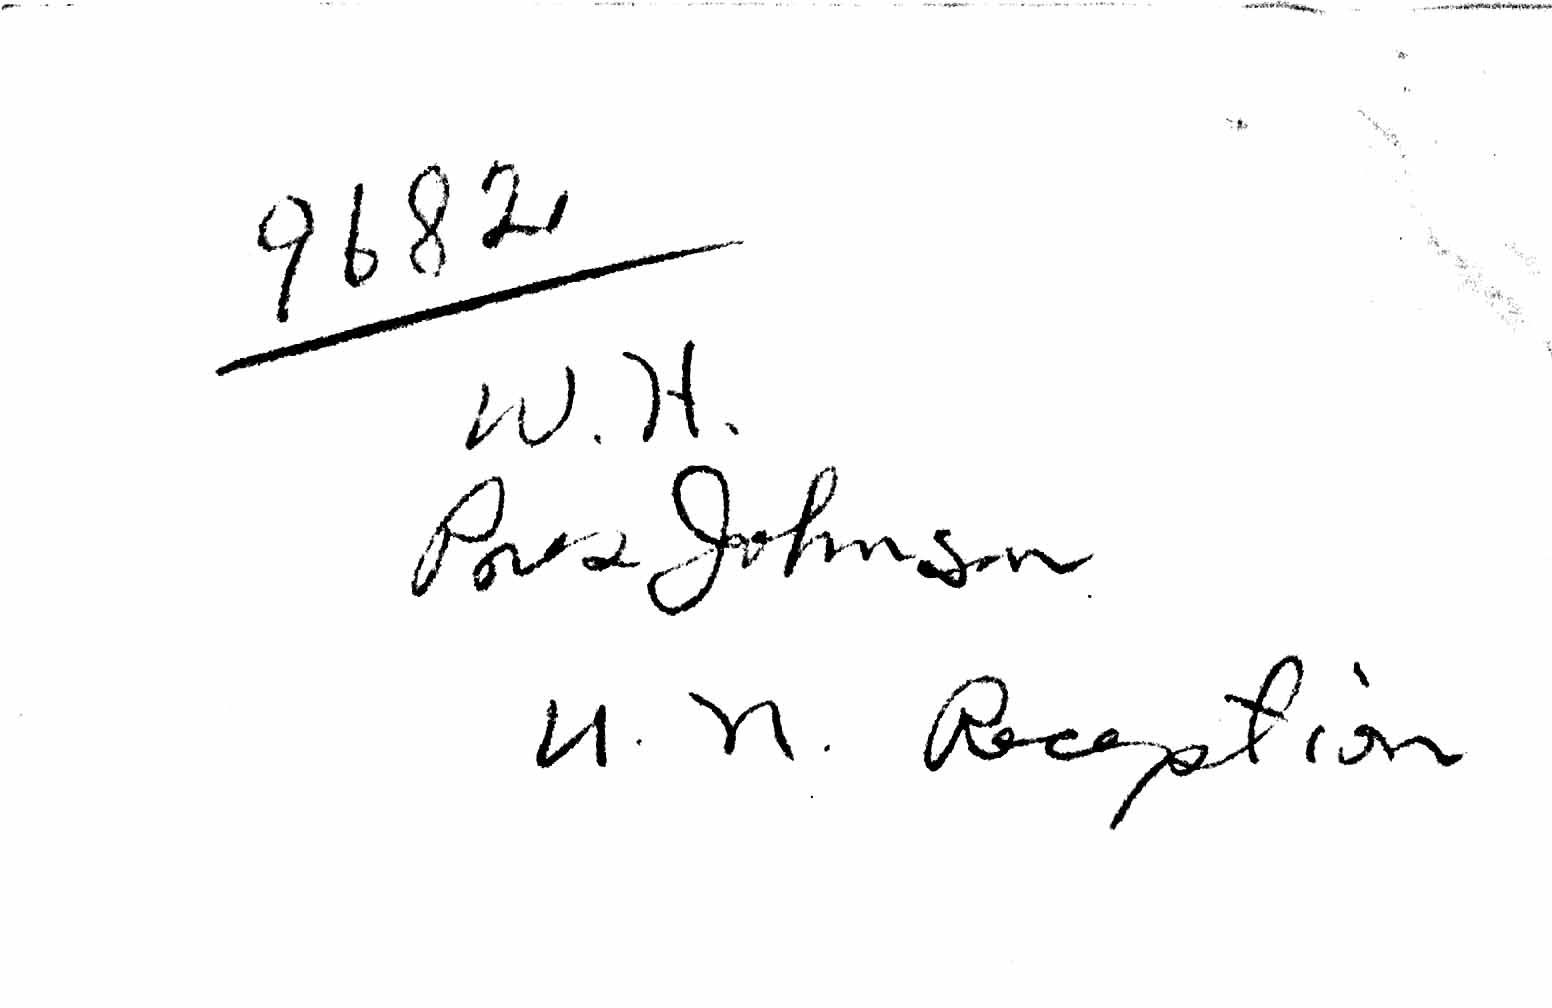 9682
W. H.
Pres Johnson
U. N. Reception